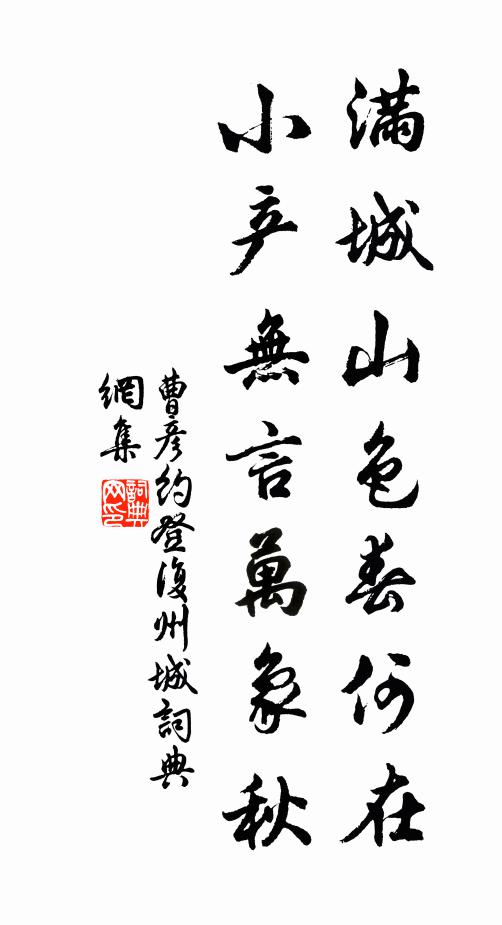 滿城山色春何在
小产無言萬象秋
曹彦約登復州城詞典
網集
詞典网印